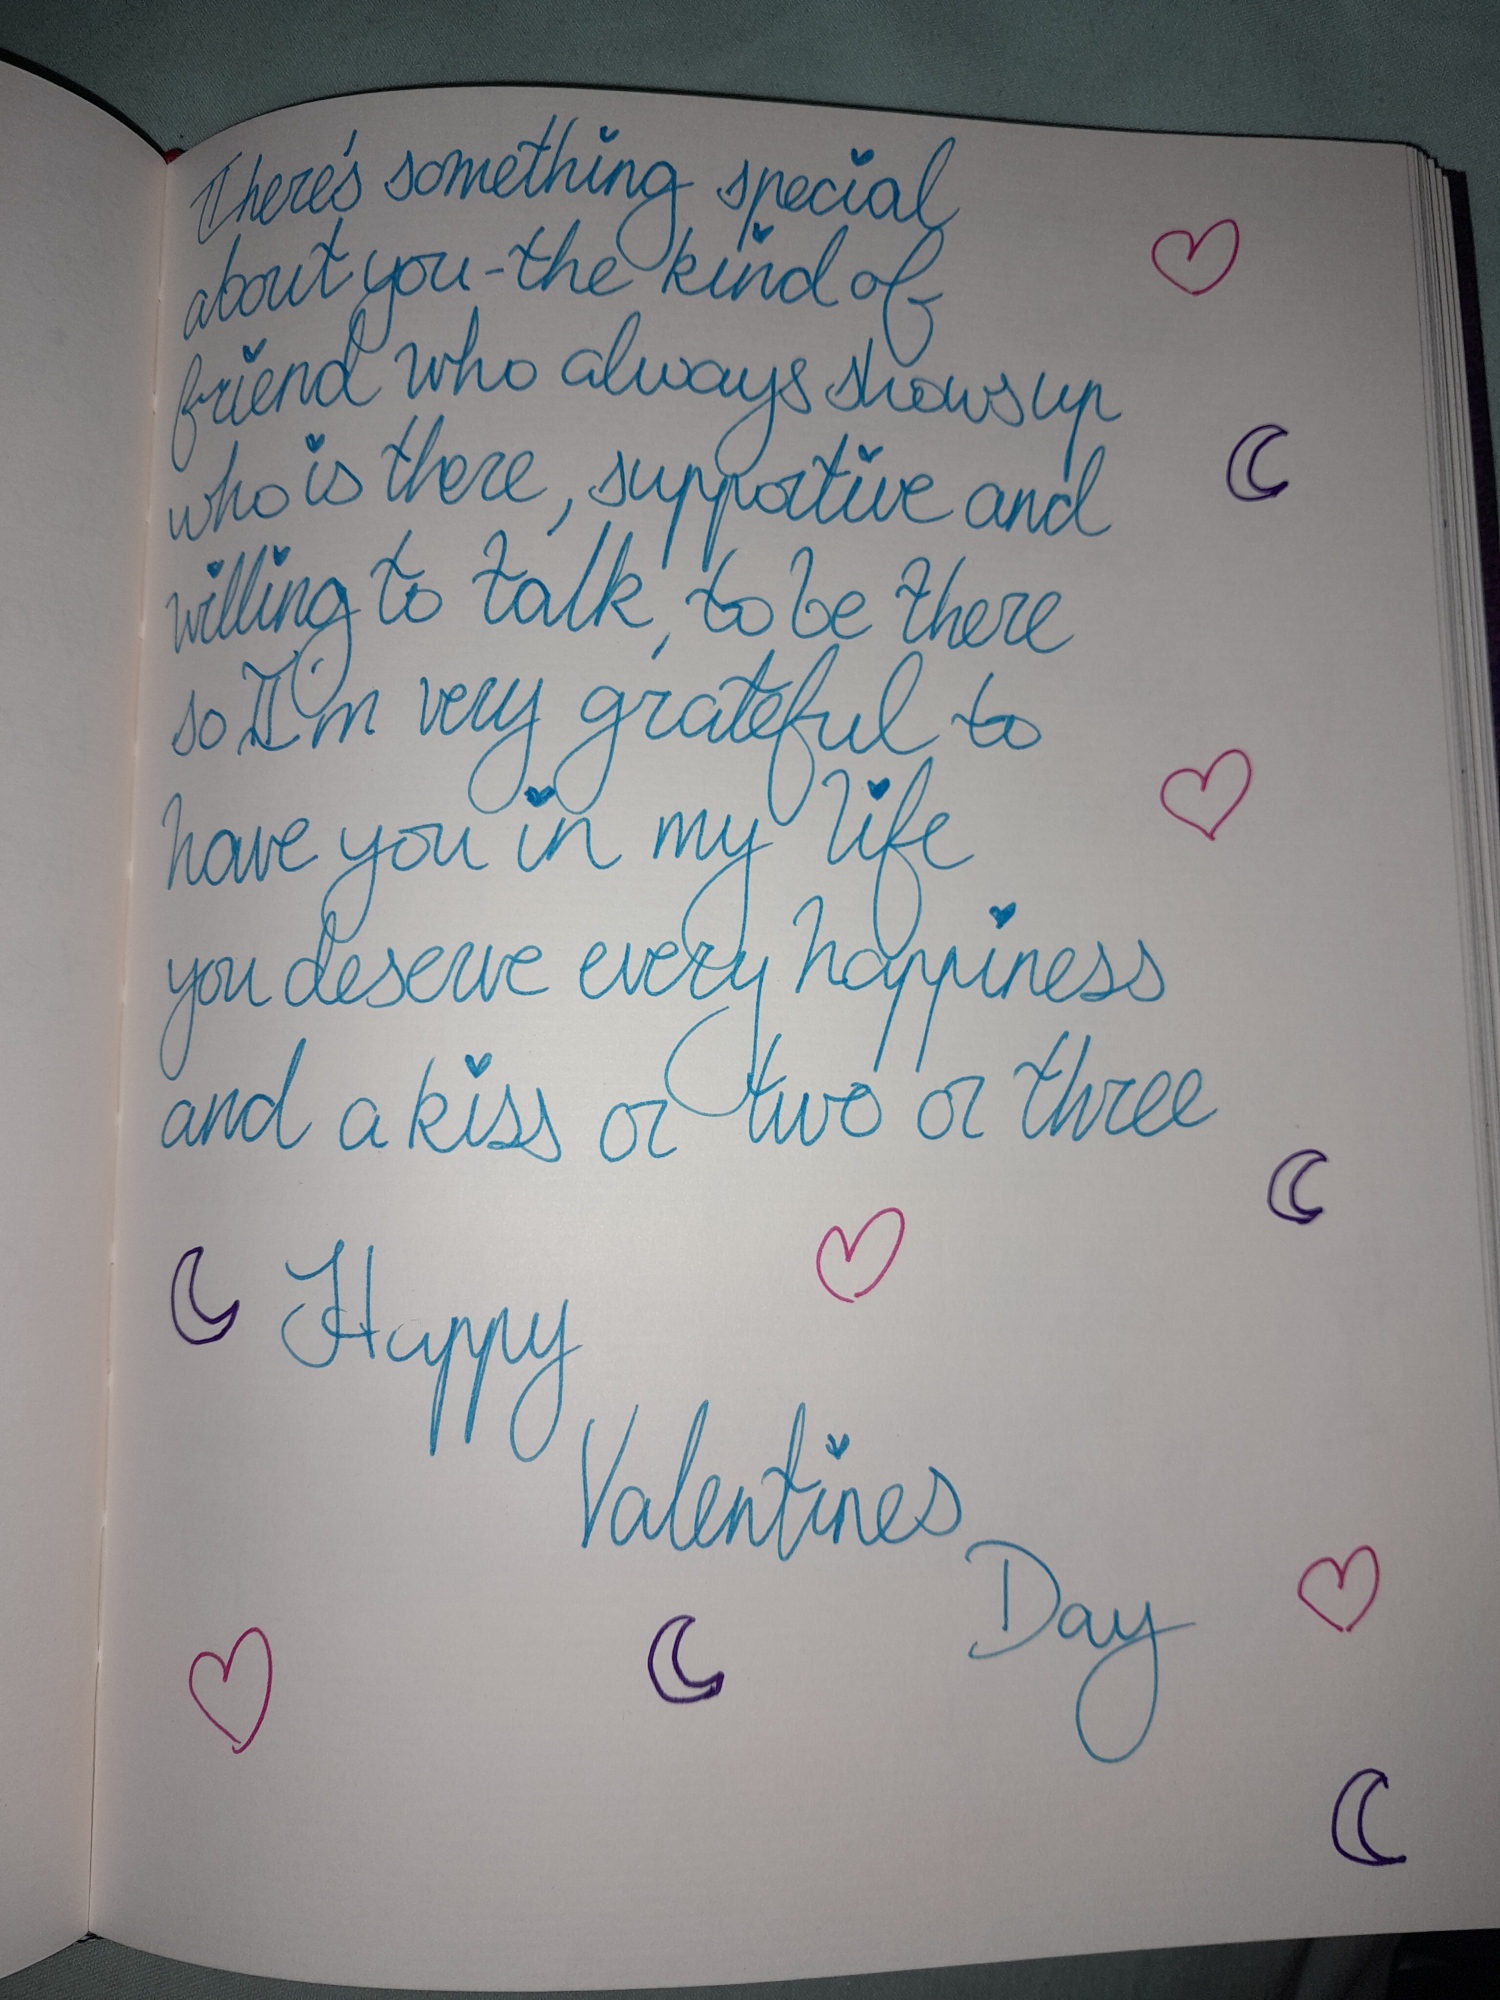 There's something special
about you - the kind of
friend who always shows up
who is there, supportive and
willing to talk, to be there
so I'm very grateful to
have you in my life
you deserve every happiness
and a kiss or two or three
Happy
Valentines
Day